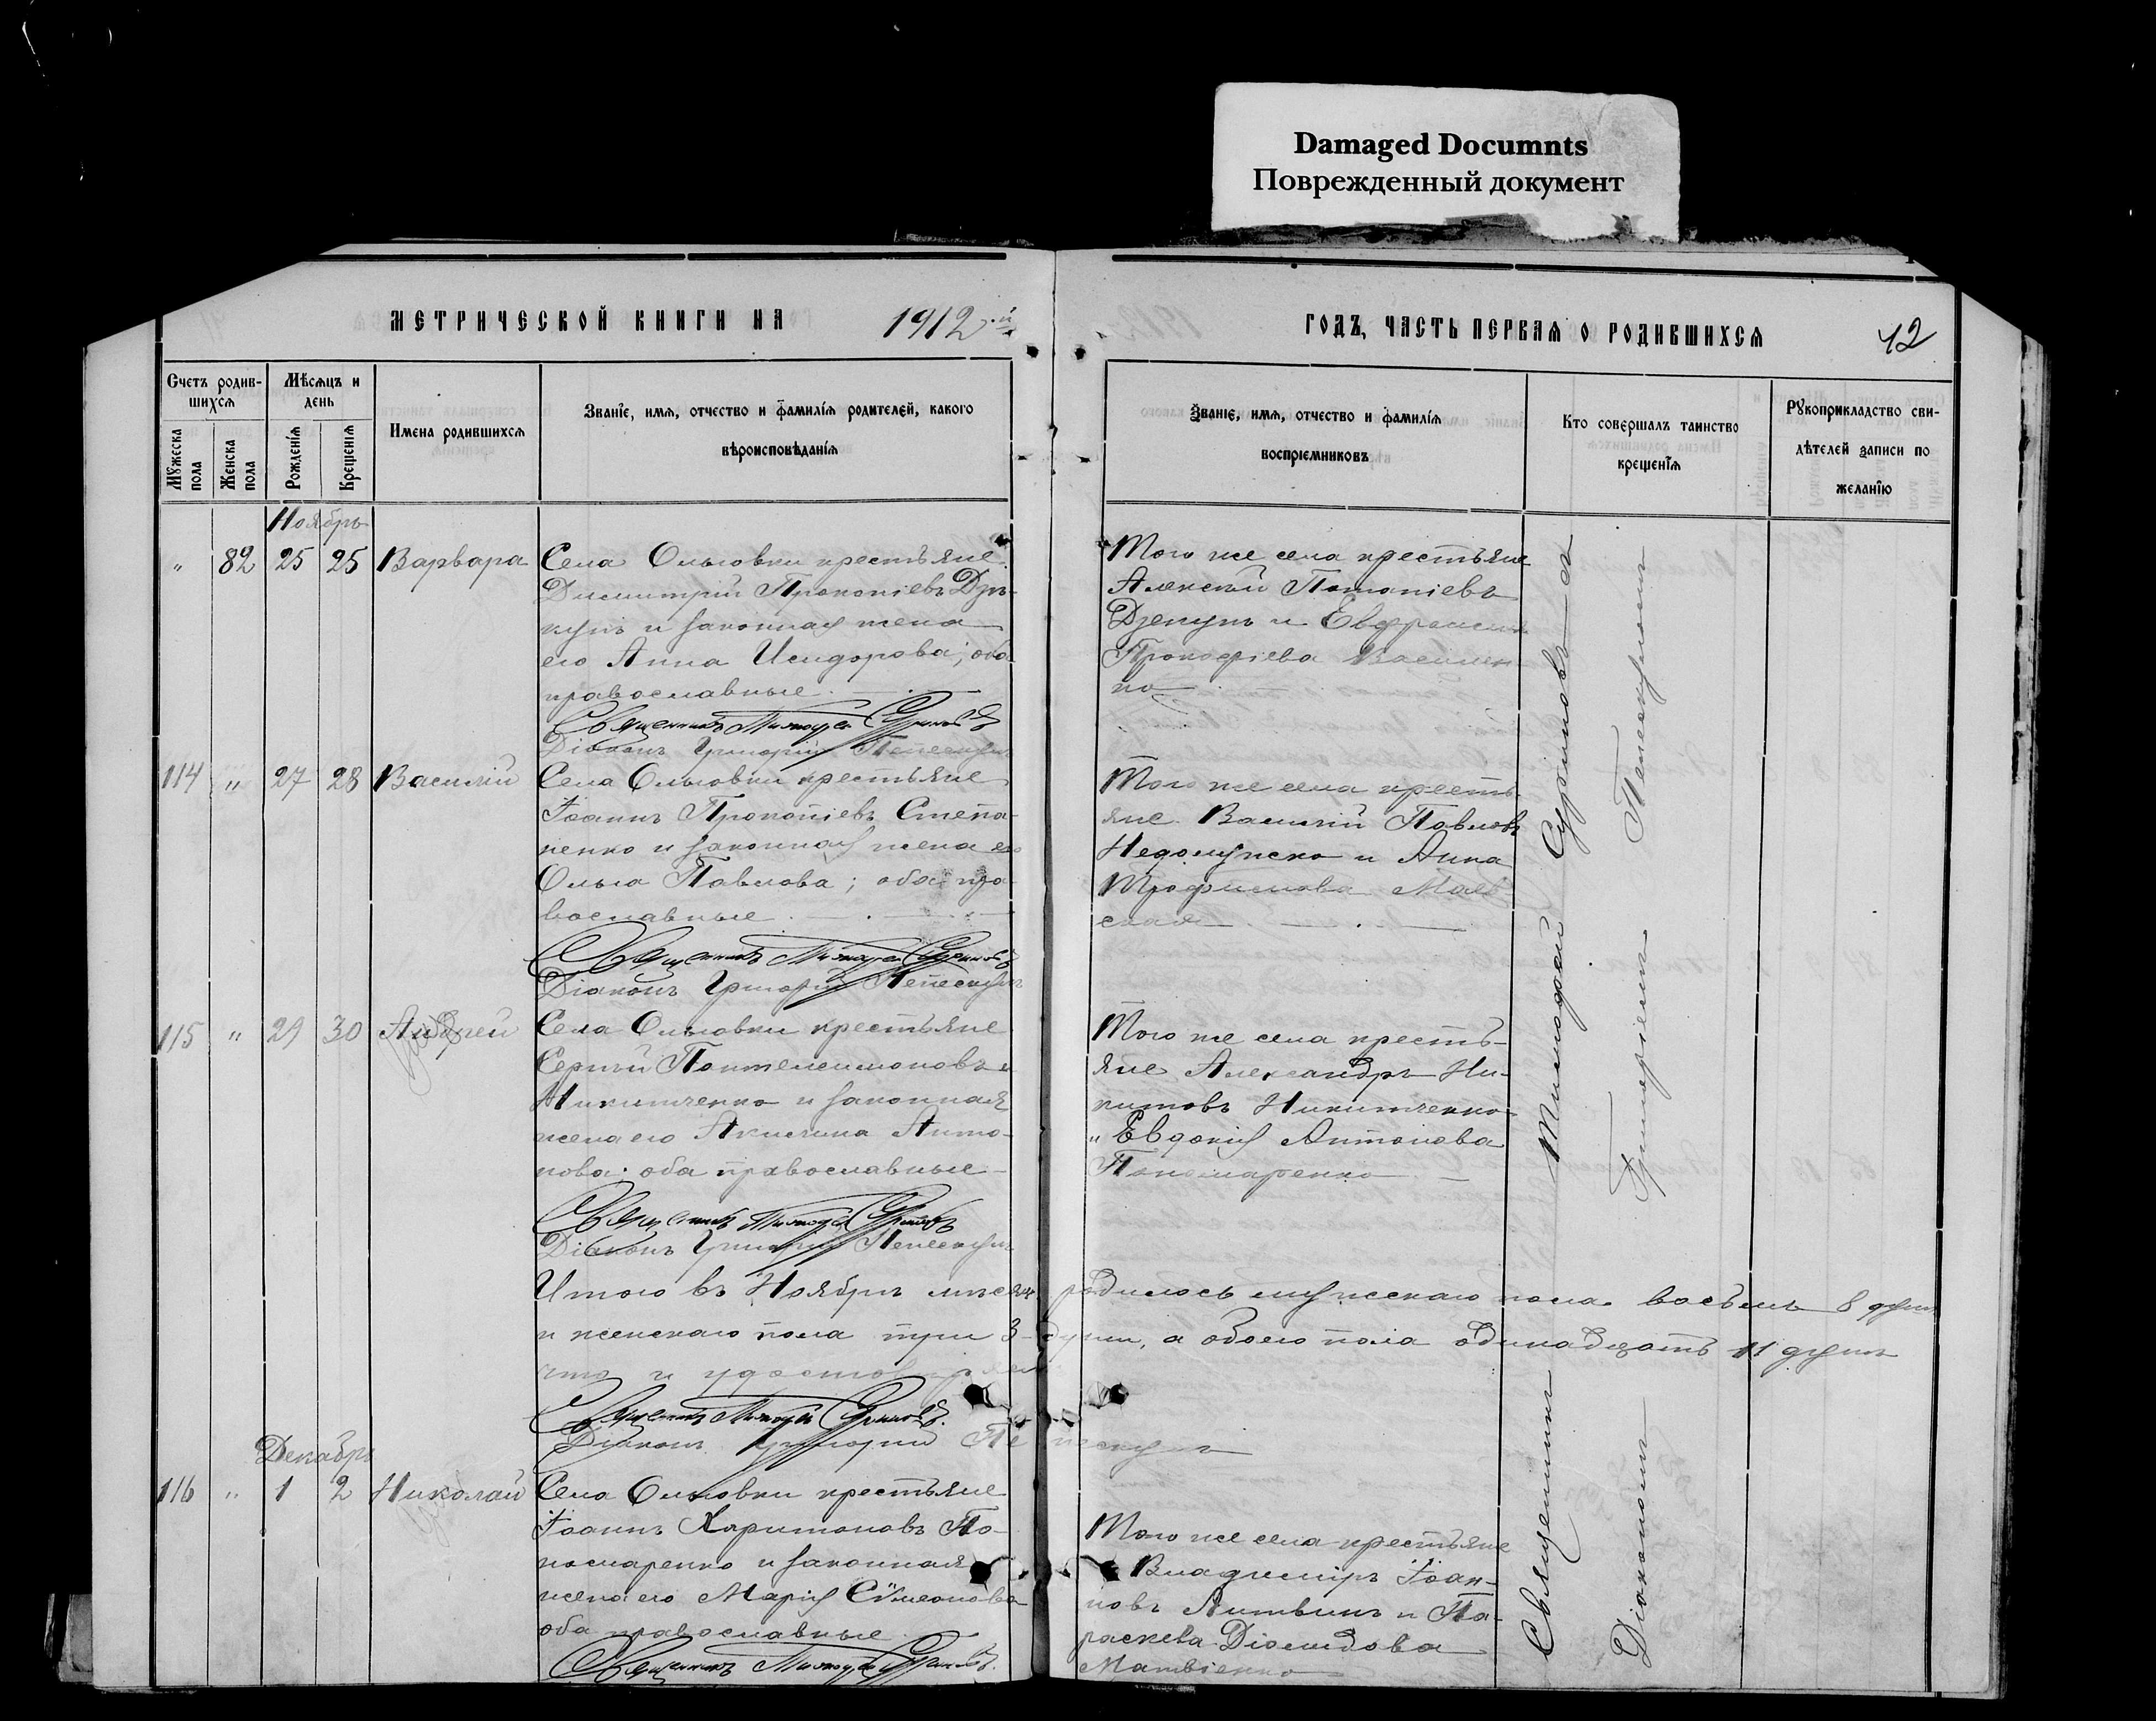 Damaged Documnts
Поврежденный документ
МЕТРИЧЕСКОЙ КНИГИ НА 1912й
ГОДЪ, ЧАСТЬ ПЕРВАЯ О РОДИВШИХСЯ
42
Счетъ родив-
шихся
Мужеска пола
Женска пола
Мѣсяцъ и
день
Рожденія
Крещенія
Имена родившихся
Званіе, имя, отчество и фамилія родителей, какого
вѣроисповѣданія
Званіе, имя, отчество и фамилія
воспріемниковъ
Кто совершалъ таинство
крещенія
Рукоприкладство сви-
дѣтелей записи по
желанію
Ноябрь
" 82 25 25 Варвара
Села Ольговки крестьяне
Димитрій Прокопіевъ
и законная жена
его Анна Исидорова; оба
православные.
Священникъ Тимофей Суриновъ
Діаконъ Григорій Пелескулъ
Того же села крестьяне
Алексѣй Потапіевъ
и Евфросинія
Прокофіева Василен-
ко
114 " 27 28 Василій
Села Ольговки крестьяне
Іоаннъ Прокопіевъ Степа-
ненко и законная жена его
Ольга Павлова; оба пра-
вославные.
Священникъ Тимофей Суриновъ
Діаконъ Григорій Пелескулъ
Того же села кресть-
яне Василій Павловъ
и Анна
Трофимова Маев-
ская
115 " 29 30 Андрей
Села Ольговки крестьяне
Сергѣй Пантелеимоновъ
Никитченко и законная
жена его Акилина Анто-
нова; оба православные
Священникъ Тимофей Суриновъ
Діаконъ Григорій Пелескулъ
Того же села кресть-
яне Александръ Ни-
китовъ Никитченко
и Евдокія Антонова
Пономаренко
Итого въ Ноябрѣ мѣсяцѣ родилось мужескаго пола восемь 8 душъ
и женскаго пола три 3 души, а обоего пола одинадцать 11 душъ
что и удостовѣряемъ
Священникъ Тимофей Суриновъ.
Діаконъ Григорій Пелескулъ
Декабрь
116 " 1 2 Николай
Села Ольговки крестьяне
Іоаннъ Харитоновъ По-
номаренко и законная
жена его Марія Сѵмеонова
оба православные
Священникъ Тимофей Суриновъ.
Того же села крестьяне
Владиміръ Іоан-
новъ Литвинъ и Па-
раскева Діомидова
Матвіенко
Священникъ Тимофей Суриновъ съ
Діакономъ Григоріемъ Пелескуломъ